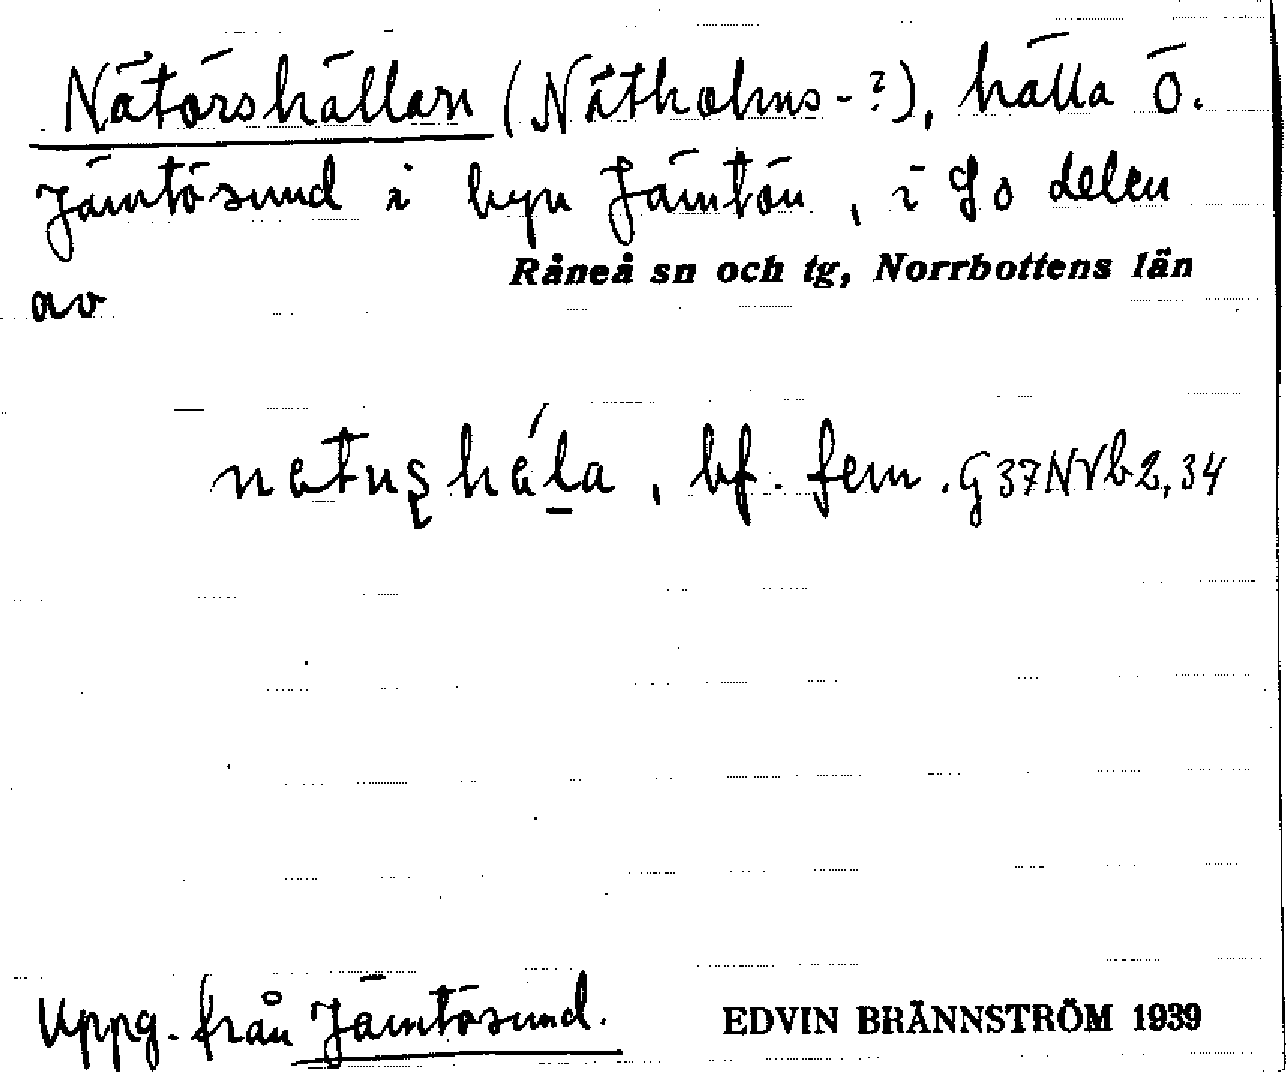 Nätörshällan (Nätholms-?), hälla ö.
Jämtösund i byn Jämtön, i SO delen
Råneå sn och tg, Norrbottens län
av
bf. fem. G37NVb2,34
Uppg. från Jämtösund.
EDVIN BRÄNNSTRÖM 1939